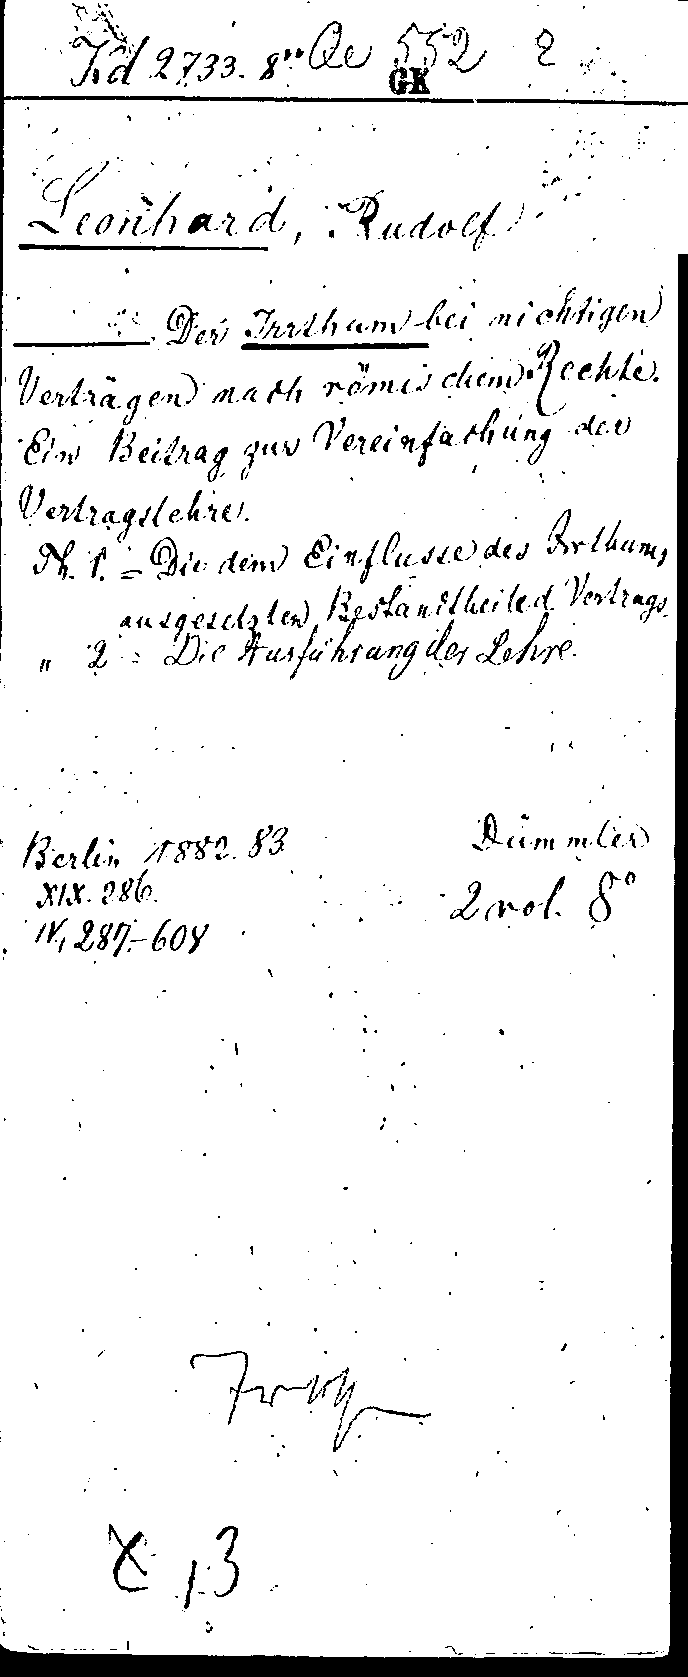 Kd 2733. 8° Qe 552 2
GK
Leonhard, Rudolf
Der Irrthum bei nichtigen
Verträgen nach römischem Rechte.
Ein Beitrag zur Vereinfachung der
Vertragslehre.
Th. 1. = Die dem Einflusse des Irrthums
ausgesetzten Bestandtheile d. Vertrags.
„ 2 = Die Ausführung der Lehre.
Berlin 1882. 83 Dümmler
XIX. 286. 2 vol. 8°
IV, 287-608
X 13